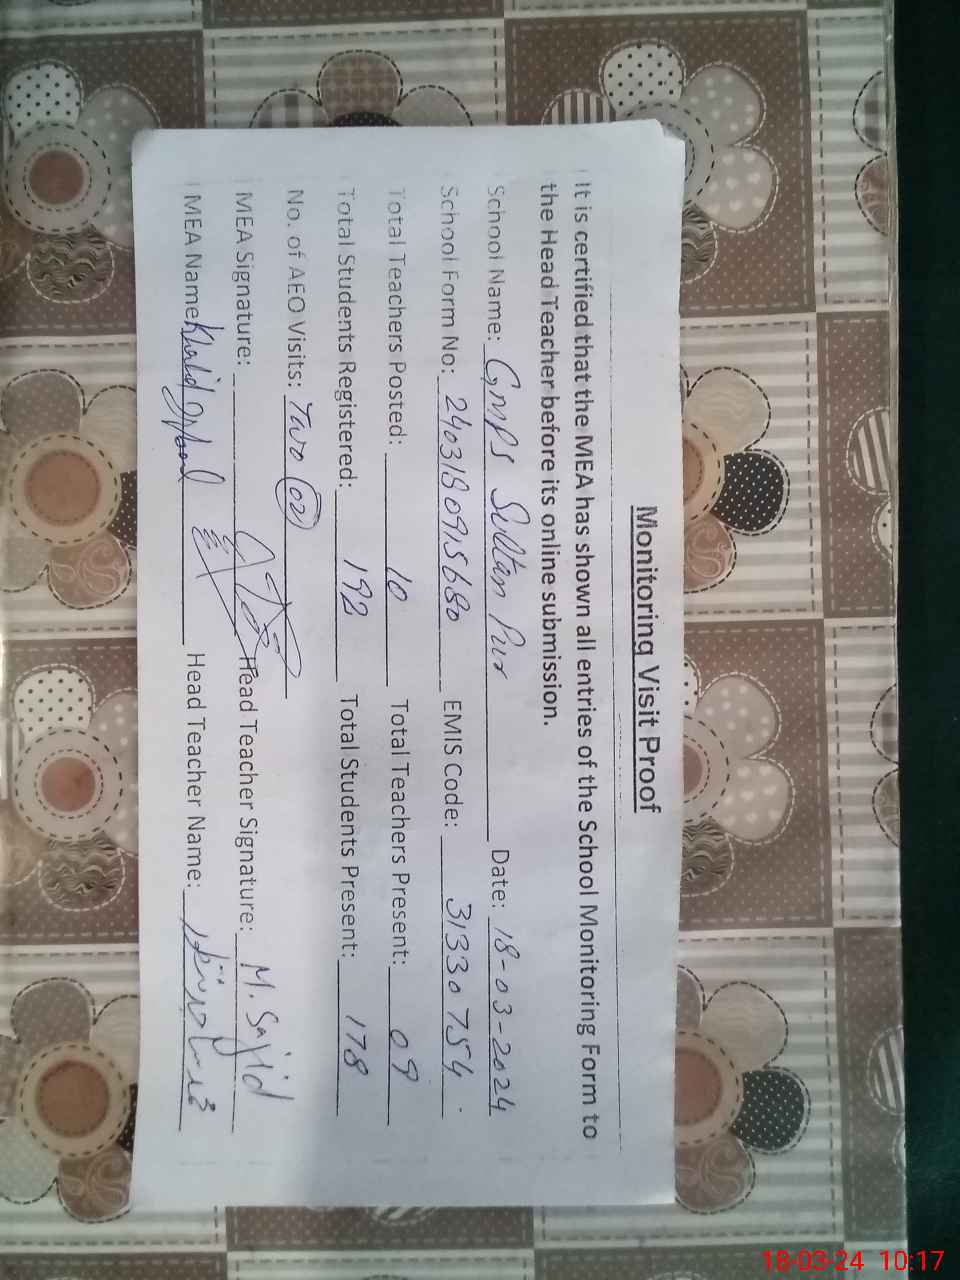 Monitoring Visit Proof
It is certified that the MEA has shown all entries of the School Monitoring Form to
the Head Teacher before its online submission.
School Name: GMPS Sultan Pur Date: 18-03-2024
School Form No: 2403180915680 EMIS Code: 31330754
Total Teachers Posted: 10 Total Teachers Present: 09
Total Students Registered: 192 Total Students Present: 178
No. of AEO Visits: Two (02)
MEA Signature: Head Teacher Signature: M. Sajid
MEA Name: Khalid Head Teacher Name:
18-03-24 10:17